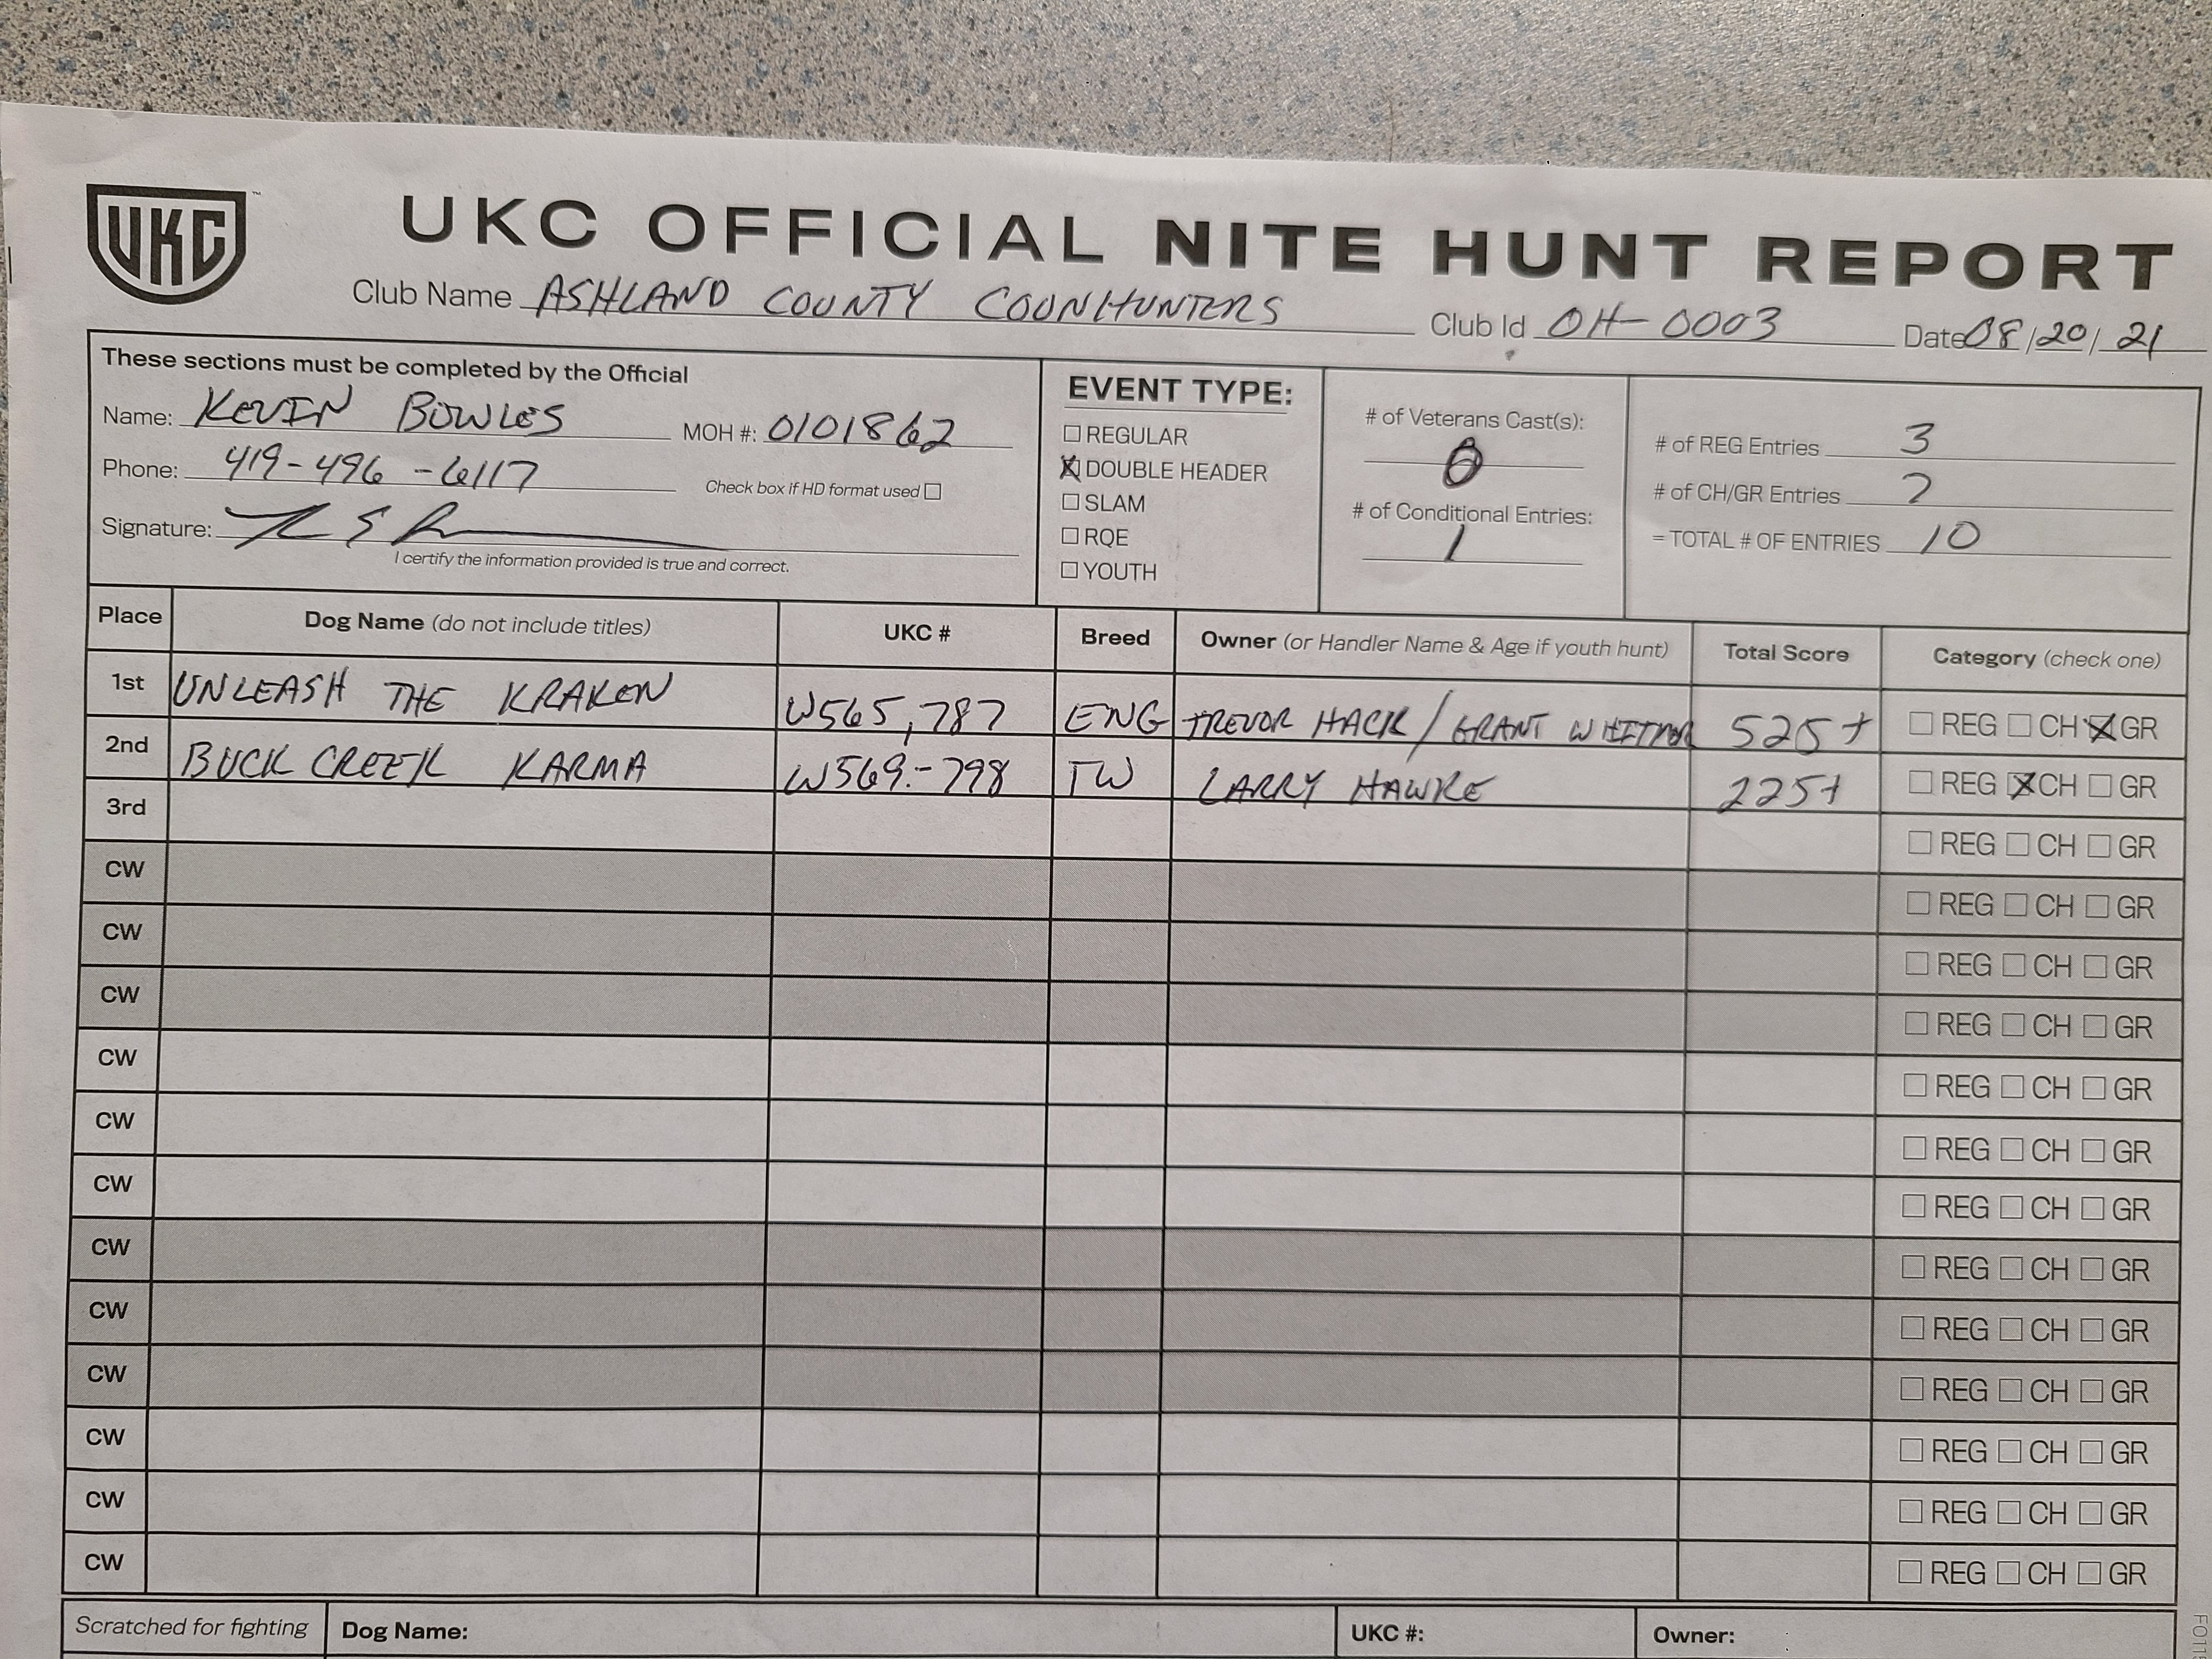 UKC ™
UKC OFFICIAL NITE HUNT REPORT
Club Name ASHLAND COUNTY COONHUNTERS Club Id OH-0003 Date 08/20/21
These sections must be completed by the Official
Name: KEVIN BOWLES MOH #: 0101862
Phone: 419-496-6117 Check box if HD format used ☐
Signature:
I certify the information provided is true and correct.
EVENT TYPE:
☐ REGULAR
☒ DOUBLE HEADER
☐ SLAM
☐ RQE
☐ YOUTH
# of Veterans Cast(s):
0
# of Conditional Entries:
1
# of REG Entries 3
# of CH/GR Entries 7
= TOTAL # OF ENTRIES 10
Place Dog Name (do not include titles) UKC # Breed Owner (or Handler Name & Age if youth hunt) Total Score Category (check one)
1st UNLEASH THE KRAKEN W565,787 ENG TREVOR HACK / GRANT 525+ ☐ REG ☐ CH ☒ GR
2nd BUCK CREEK KARMA W569.-798 TW LARRY HAWKE 225+ ☐ REG ☒ CH ☐ GR
3rd ☐ REG ☐ CH ☐ GR
CW ☐ REG ☐ CH ☐ GR
CW ☐ REG ☐ CH ☐ GR
CW ☐ REG ☐ CH ☐ GR
CW ☐ REG ☐ CH ☐ GR
CW ☐ REG ☐ CH ☐ GR
CW ☐ REG ☐ CH ☐ GR
CW ☐ REG ☐ CH ☐ GR
CW ☐ REG ☐ CH ☐ GR
CW ☐ REG ☐ CH ☐ GR
CW ☐ REG ☐ CH ☐ GR
CW ☐ REG ☐ CH ☐ GR
CW ☐ REG ☐ CH ☐ GR
Scratched for fighting Dog Name: UKC #: Owner: